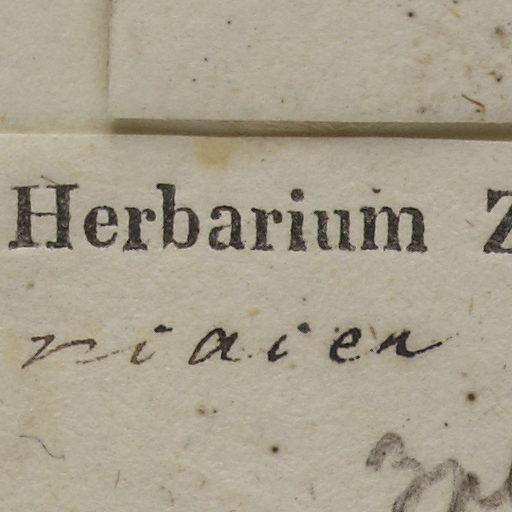 Herbarium Z
niaien